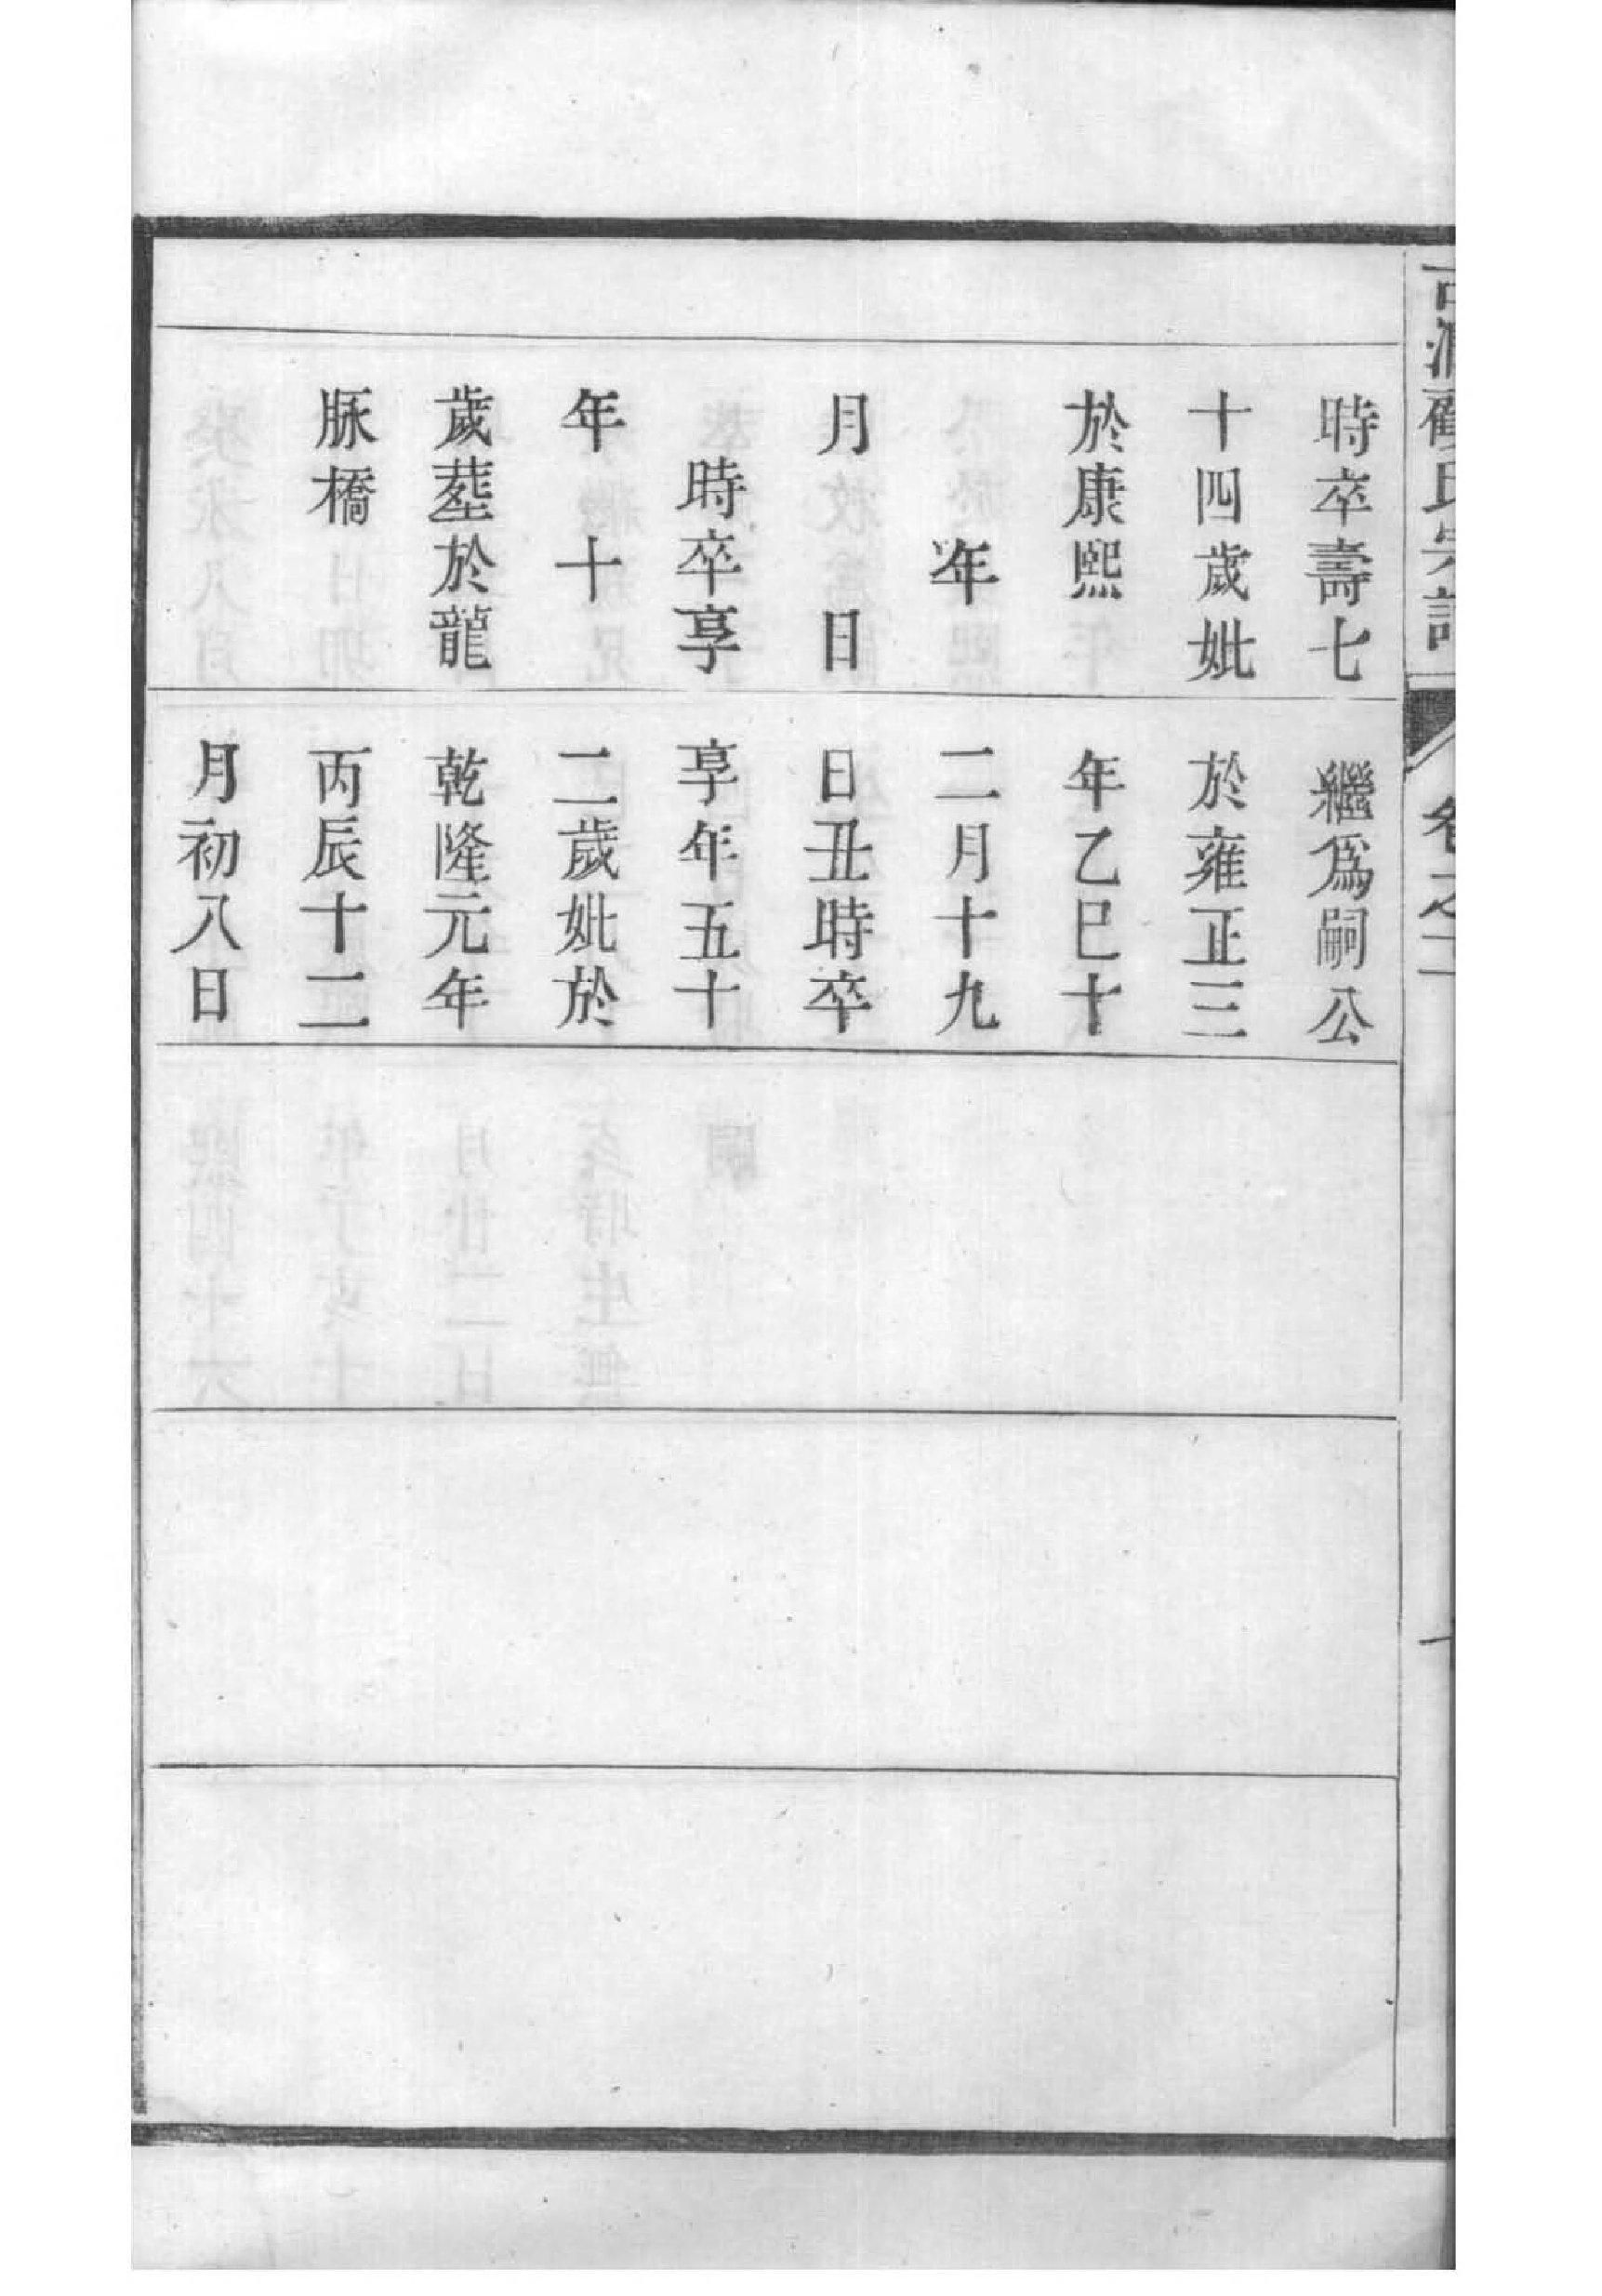 時卒壽七
十四歲妣
於康熙
年
月　日
時卒享
年　十
歲塟於龍
脉橋
繼爲嗣公
於雍正三
年乙巳十
二月十九
日丑時卒
享年五十
二歲妣於
乾隆元年
丙辰十二
月初八日